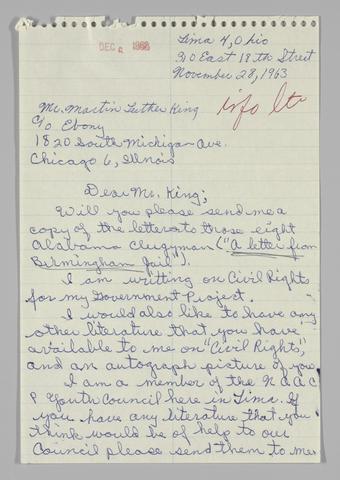 DEC 6 1963
Lima 4, Ohio
310 East 18th Street
November 28, 1963
info ltr
Mr. Martin Luther King
C/o Ebony
1820 South Michigan Ave.
Chicago 6, Illnois
Dear Mr. King;
Will you please send me a
copy of the letter to those eight
Alabama Clergyman ("A letter from
Birmingham Jail").
I am writing on Civil Rights
for my Government Project.
I would also like to have any
other literature that you have
available to me on "Civil Rights,"
and an autograph picture of you.
I am a member of the NAAC
P Youth Council here in Lima. If
you have any literature that you
think would be of help to our
Council please send them to me